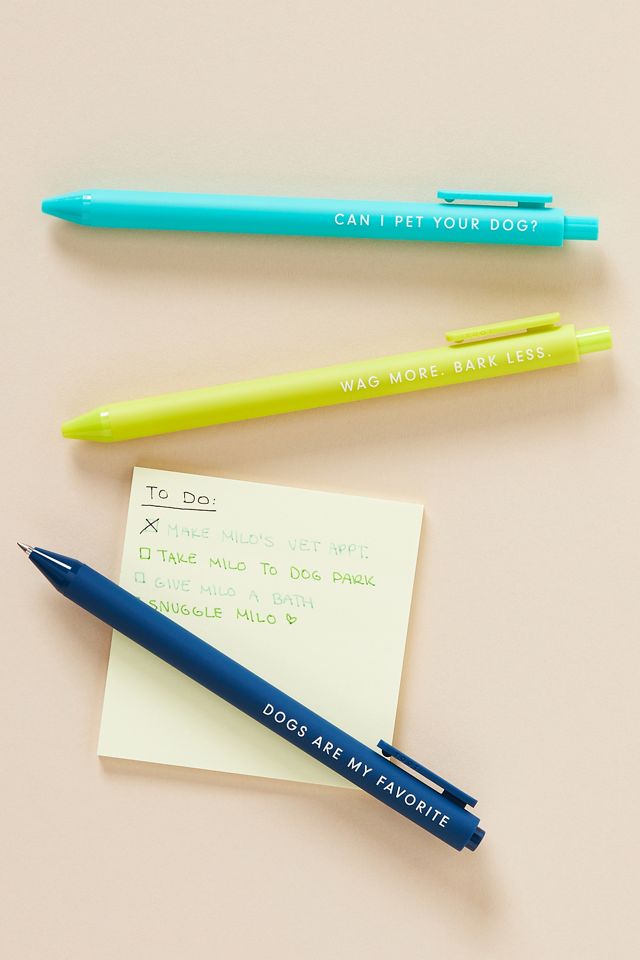 CAN I PET YOUR DOG?
WAG MORE. BARK LESS.
TO DO:
MAKE MILO'S VET APPT.
TAKE MILO TO DOG PARK
GIVE MILO A BATH
SNUGGLE MILO ♡
DOGS ARE MY FAVORITE